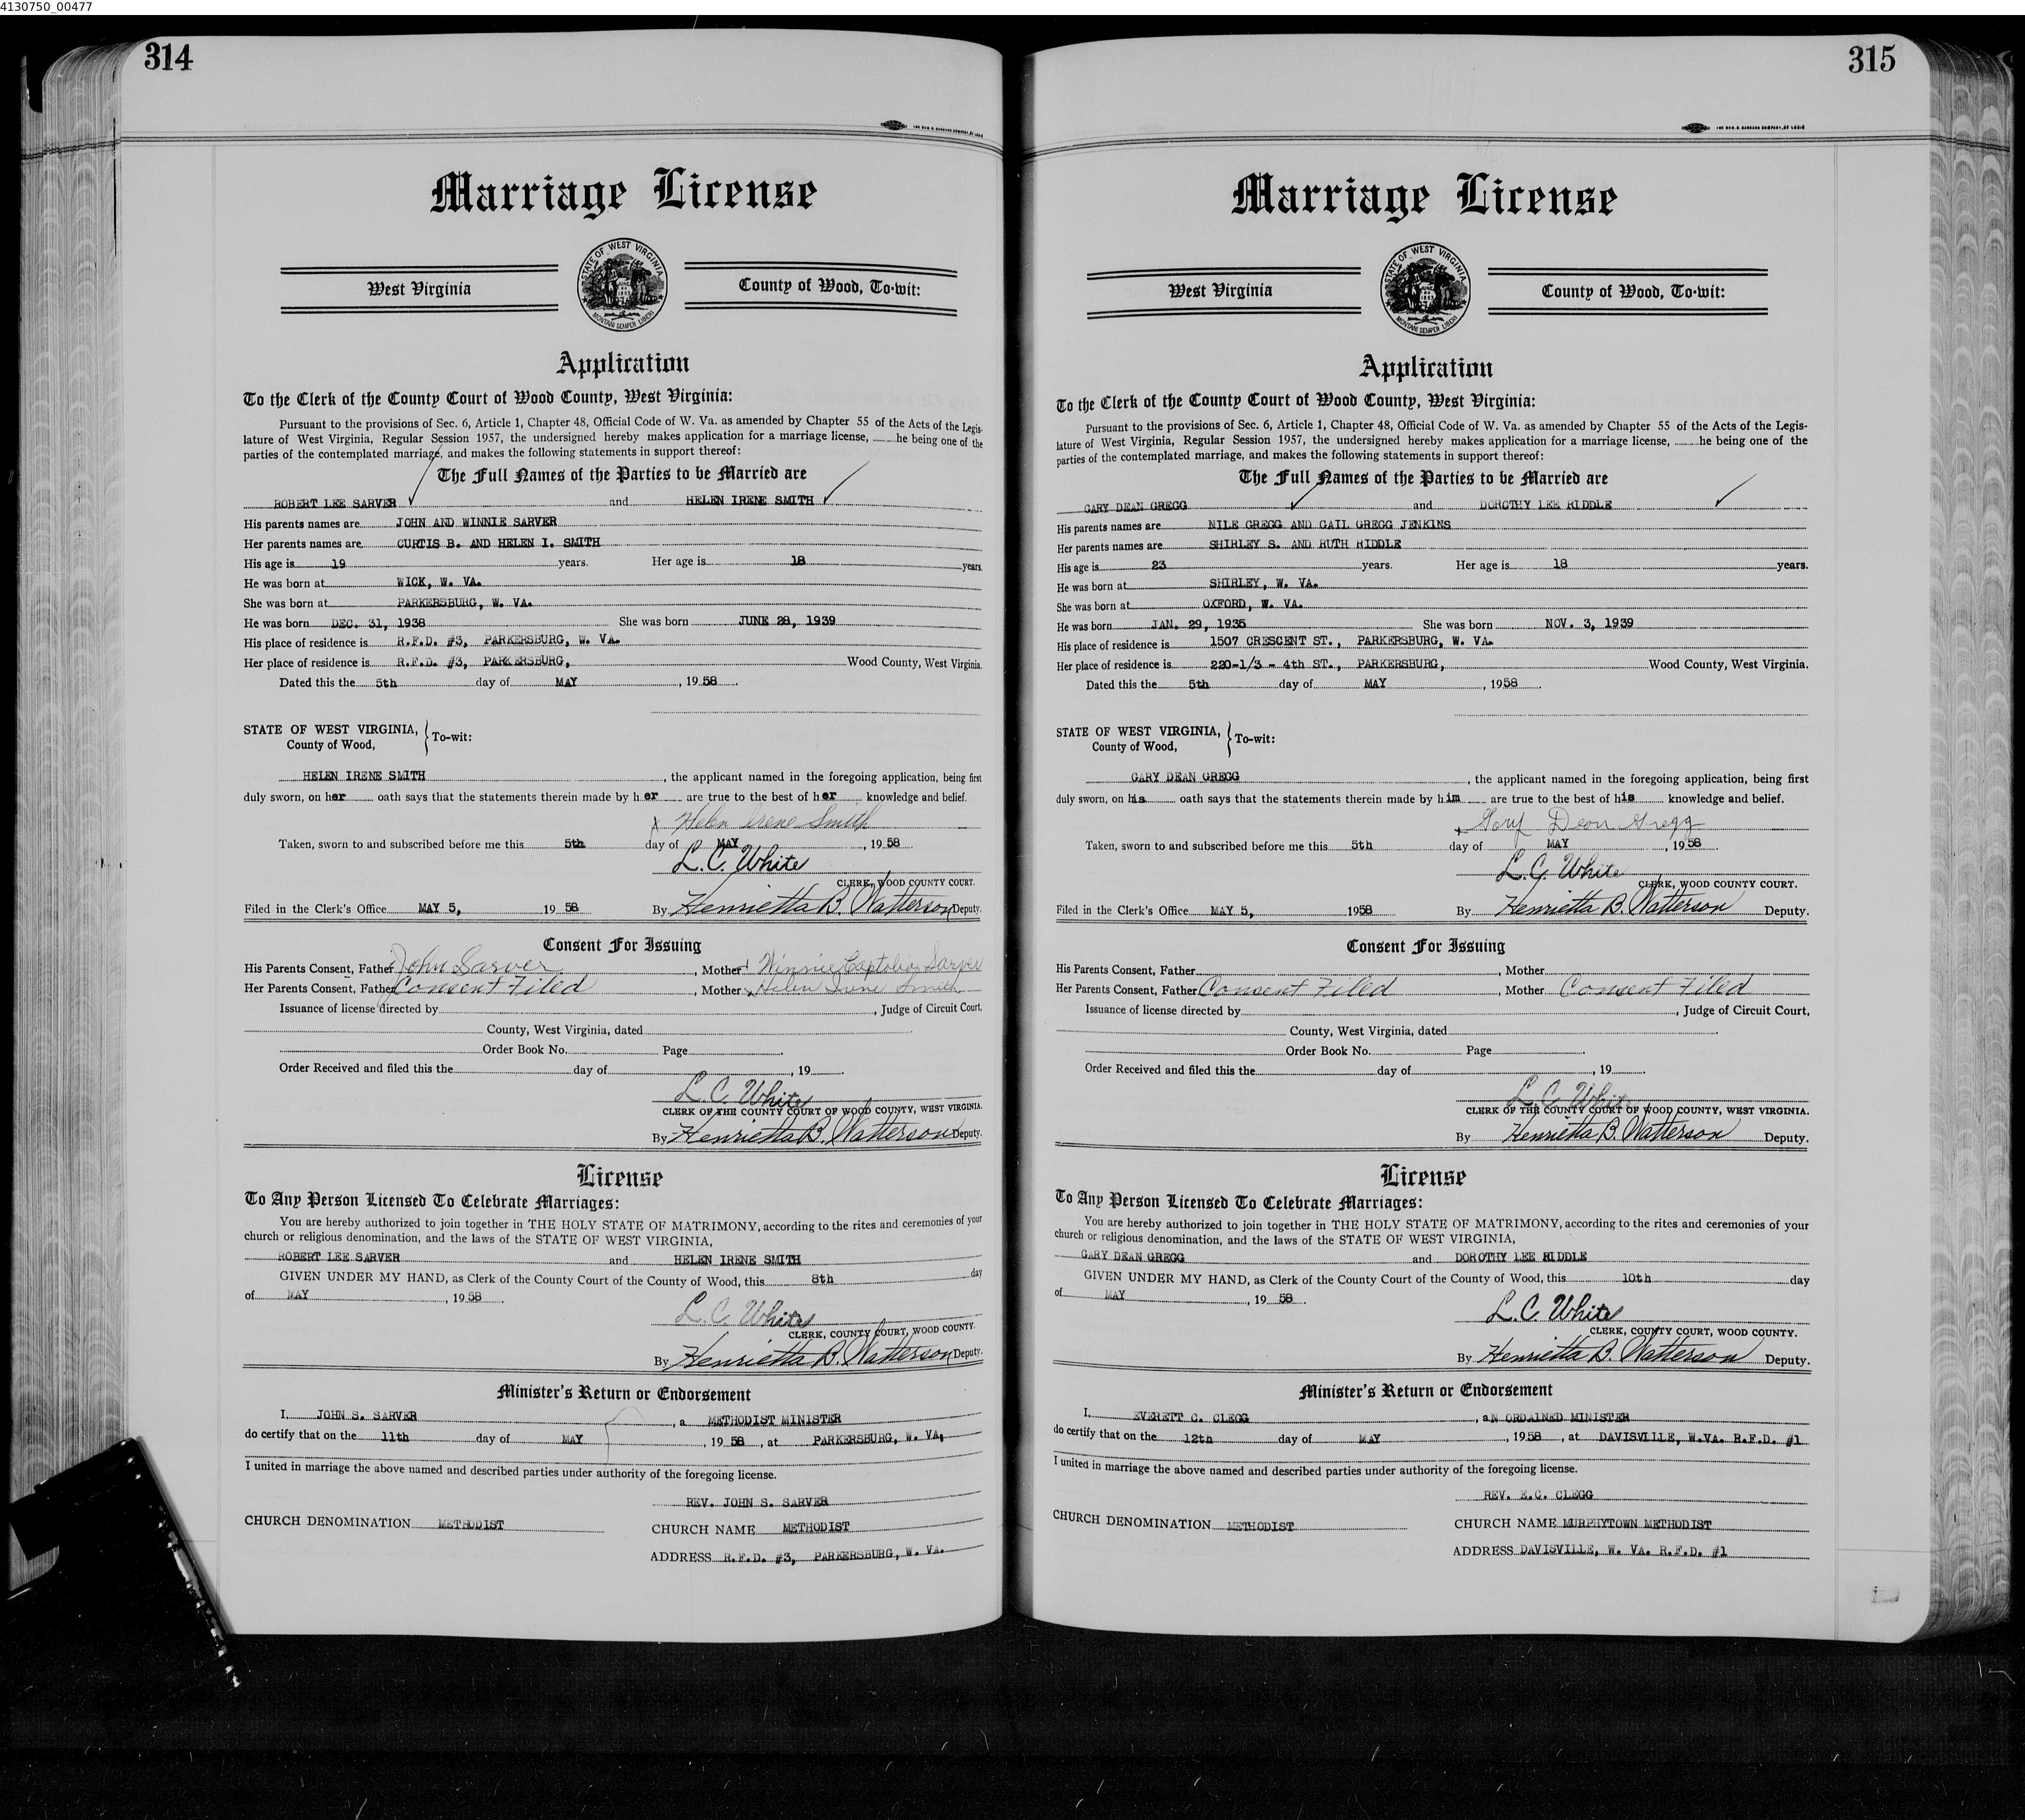 4130750_00477
314
Marriage License
STATE OF WEST VIRGINIA
MONTANI SEMPER LIBERI
West Virginia
County of Wood, To-wit:
Application
To the Clerk of the County Court of Wood County, West Virginia:
Pursuant to the provisions of Sec. 6, Article 1, Chapter 48, Official Code of W. Va. as amended by Chapter 55 of the Acts of the Legis-
lature of West Virginia, Regular Session 1957, the undersigned hereby makes application for a marriage license, he being one of the
parties of the contemplated marriage, and makes the following statements in support thereof:
The Full Names of the Parties to be Married are
ROBERT LEE SARVER and HELEN IRENE SMITH
His parents names are JOHN AND WINNIE SARVER
Her parents names are CURTIS B. AND HELEN I. SMITH
His age is 19 years. Her age is 18 years.
He was born at WICK, W. VA.
She was born at PARKERSBURG, W. VA.
He was born DEC. 31, 1938 She was born JUNE 28, 1939
His place of residence is R.F.D. #3, PARKERSBURG, W. VA.
Her place of residence is R.F.D. #3, PARKERSBURG, Wood County, West Virginia.
Dated this the 5th day of MAY, 1958.
STATE OF WEST VIRGINIA,
County of Wood, To-wit:
HELEN IRENE SMITH, the applicant named in the foregoing application, being first
duly sworn, on her oath says that the statements therein made by her are true to the best of her knowledge and belief.
x Helen Irene Smith
Taken, sworn to and subscribed before me this 5th day of MAY, 1958.
L. C. White
CLERK, WOOD COUNTY COURT.
Filed in the Clerk's Office MAY 5, 1958 By Henrietta B. Watterson Deputy.
Consent For Issuing
His Parents Consent, Father John Sarver, Mother Winnie Sarver
Her Parents Consent, Father Consent Filed, Mother Helen Irene Smith
Issuance of license directed by, Judge of Circuit Court,
County, West Virginia, dated
Order Book No. Page
Order Received and filed this the day of, 19
L. C. White
CLERK OF THE COUNTY COURT OF WOOD COUNTY, WEST VIRGINIA.
By Henrietta B. Watterson Deputy.
License
To Any Person Licensed To Celebrate Marriages:
You are hereby authorized to join together in THE HOLY STATE OF MATRIMONY, according to the rites and ceremonies of your
church or religious denomination, and the laws of the STATE OF WEST VIRGINIA,
ROBERT LEE SARVER and HELEN IRENE SMITH
GIVEN UNDER MY HAND, as Clerk of the County Court of the County of Wood, this 8th day
of MAY, 1958.
L. C. White
CLERK, COUNTY COURT, WOOD COUNTY.
By Henrietta B. Watterson Deputy.
Minister's Return or Endorsement
I, JOHN S. SARVER, a METHODIST MINISTER
do certify that on the 11th day of MAY, 1958, at PARKERSBURG, W. VA,
I united in marriage the above named and described parties under authority of the foregoing license.
REV. JOHN S. SARVER
CHURCH DENOMINATION METHODIST CHURCH NAME METHODIST
ADDRESS R.F.D. #3, PARKERSBURG, W. VA.
315
Marriage License
STATE OF WEST VIRGINIA
MONTANI SEMPER LIBERI
West Virginia
County of Wood, To-wit:
Application
To the Clerk of the County Court of Wood County, West Virginia:
Pursuant to the provisions of Sec. 6, Article 1, Chapter 48, Official Code of W. Va. as amended by Chapter 55 of the Acts of the Legis-
lature of West Virginia, Regular Session 1957, the undersigned hereby makes application for a marriage license, he being one of the
parties of the contemplated marriage, and makes the following statements in support thereof:
The Full Names of the Parties to be Married are
GARY DEAN GREGG and DOROTHY LEE RIDDLE
His parents names are NILE GREGG AND GAIL GREGG JENKINS
Her parents names are SHIRLEY S. AND RUTH RIDDLE
His age is 23 years. Her age is 18 years.
He was born at SHIRLEY, W. VA.
She was born at OXFORD, W. VA.
He was born JAN. 29, 1935 She was born NOV. 3, 1939
His place of residence is 1507 CRESCENT ST., PARKERSBURG, W. VA.
Her place of residence is 220-1/3 - 4th ST., PARKERSBURG, Wood County, West Virginia.
Dated this the 5th day of MAY, 1958.
STATE OF WEST VIRGINIA,
County of Wood, To-wit:
GARY DEAN GREGG, the applicant named in the foregoing application, being first
duly sworn, on his oath says that the statements therein made by him are true to the best of his knowledge and belief.
x Gary Dean Gregg
Taken, sworn to and subscribed before me this 5th day of MAY, 1958.
L. C. White
CLERK, WOOD COUNTY COURT.
Filed in the Clerk's Office MAY 5, 1958 By Henrietta B. Watterson Deputy.
Consent For Issuing
His Parents Consent, Father, Mother
Her Parents Consent, Father Consent Filed, Mother Consent Filed
Issuance of license directed by, Judge of Circuit Court,
County, West Virginia, dated
Order Book No. Page
Order Received and filed this the day of, 19
L. C. White
CLERK OF THE COUNTY COURT OF WOOD COUNTY, WEST VIRGINIA.
By Henrietta B. Watterson Deputy.
License
To Any Person Licensed To Celebrate Marriages:
You are hereby authorized to join together in THE HOLY STATE OF MATRIMONY, according to the rites and ceremonies of your
church or religious denomination, and the laws of the STATE OF WEST VIRGINIA,
GARY DEAN GREGG and DOROTHY LEE RIDDLE
GIVEN UNDER MY HAND, as Clerk of the County Court of the County of Wood, this 10th day
of MAY, 1958.
L. C. White
CLERK, COUNTY COURT, WOOD COUNTY.
By Henrietta B. Watterson Deputy.
Minister's Return or Endorsement
I, EVERETT C. CLEGG, aN ORDAINED MINISTER
do certify that on the 12th day of MAY, 1958, at DAVISVILLE, W.VA. R.F.D. #1
I united in marriage the above named and described parties under authority of the foregoing license.
REV. E.C. CLEGG
CHURCH DENOMINATION METHODIST CHURCH NAME MURPHYTOWN METHODIST
ADDRESS DAVISVILLE, W. VA. R.F.D. #1